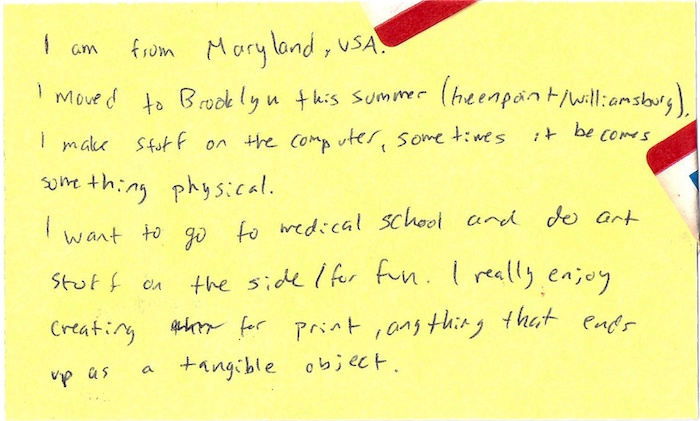 I am from Maryland, USA.
I moved to Brooklyn this summer (Greenpoint/Williamsburg).
I make stuff on the computer, sometimes it becomes
something physical.
I want to go to medical school and do art
stuff on the side/for fun. I really enjoy
creating for print, anything that ends
up as a tangible object.